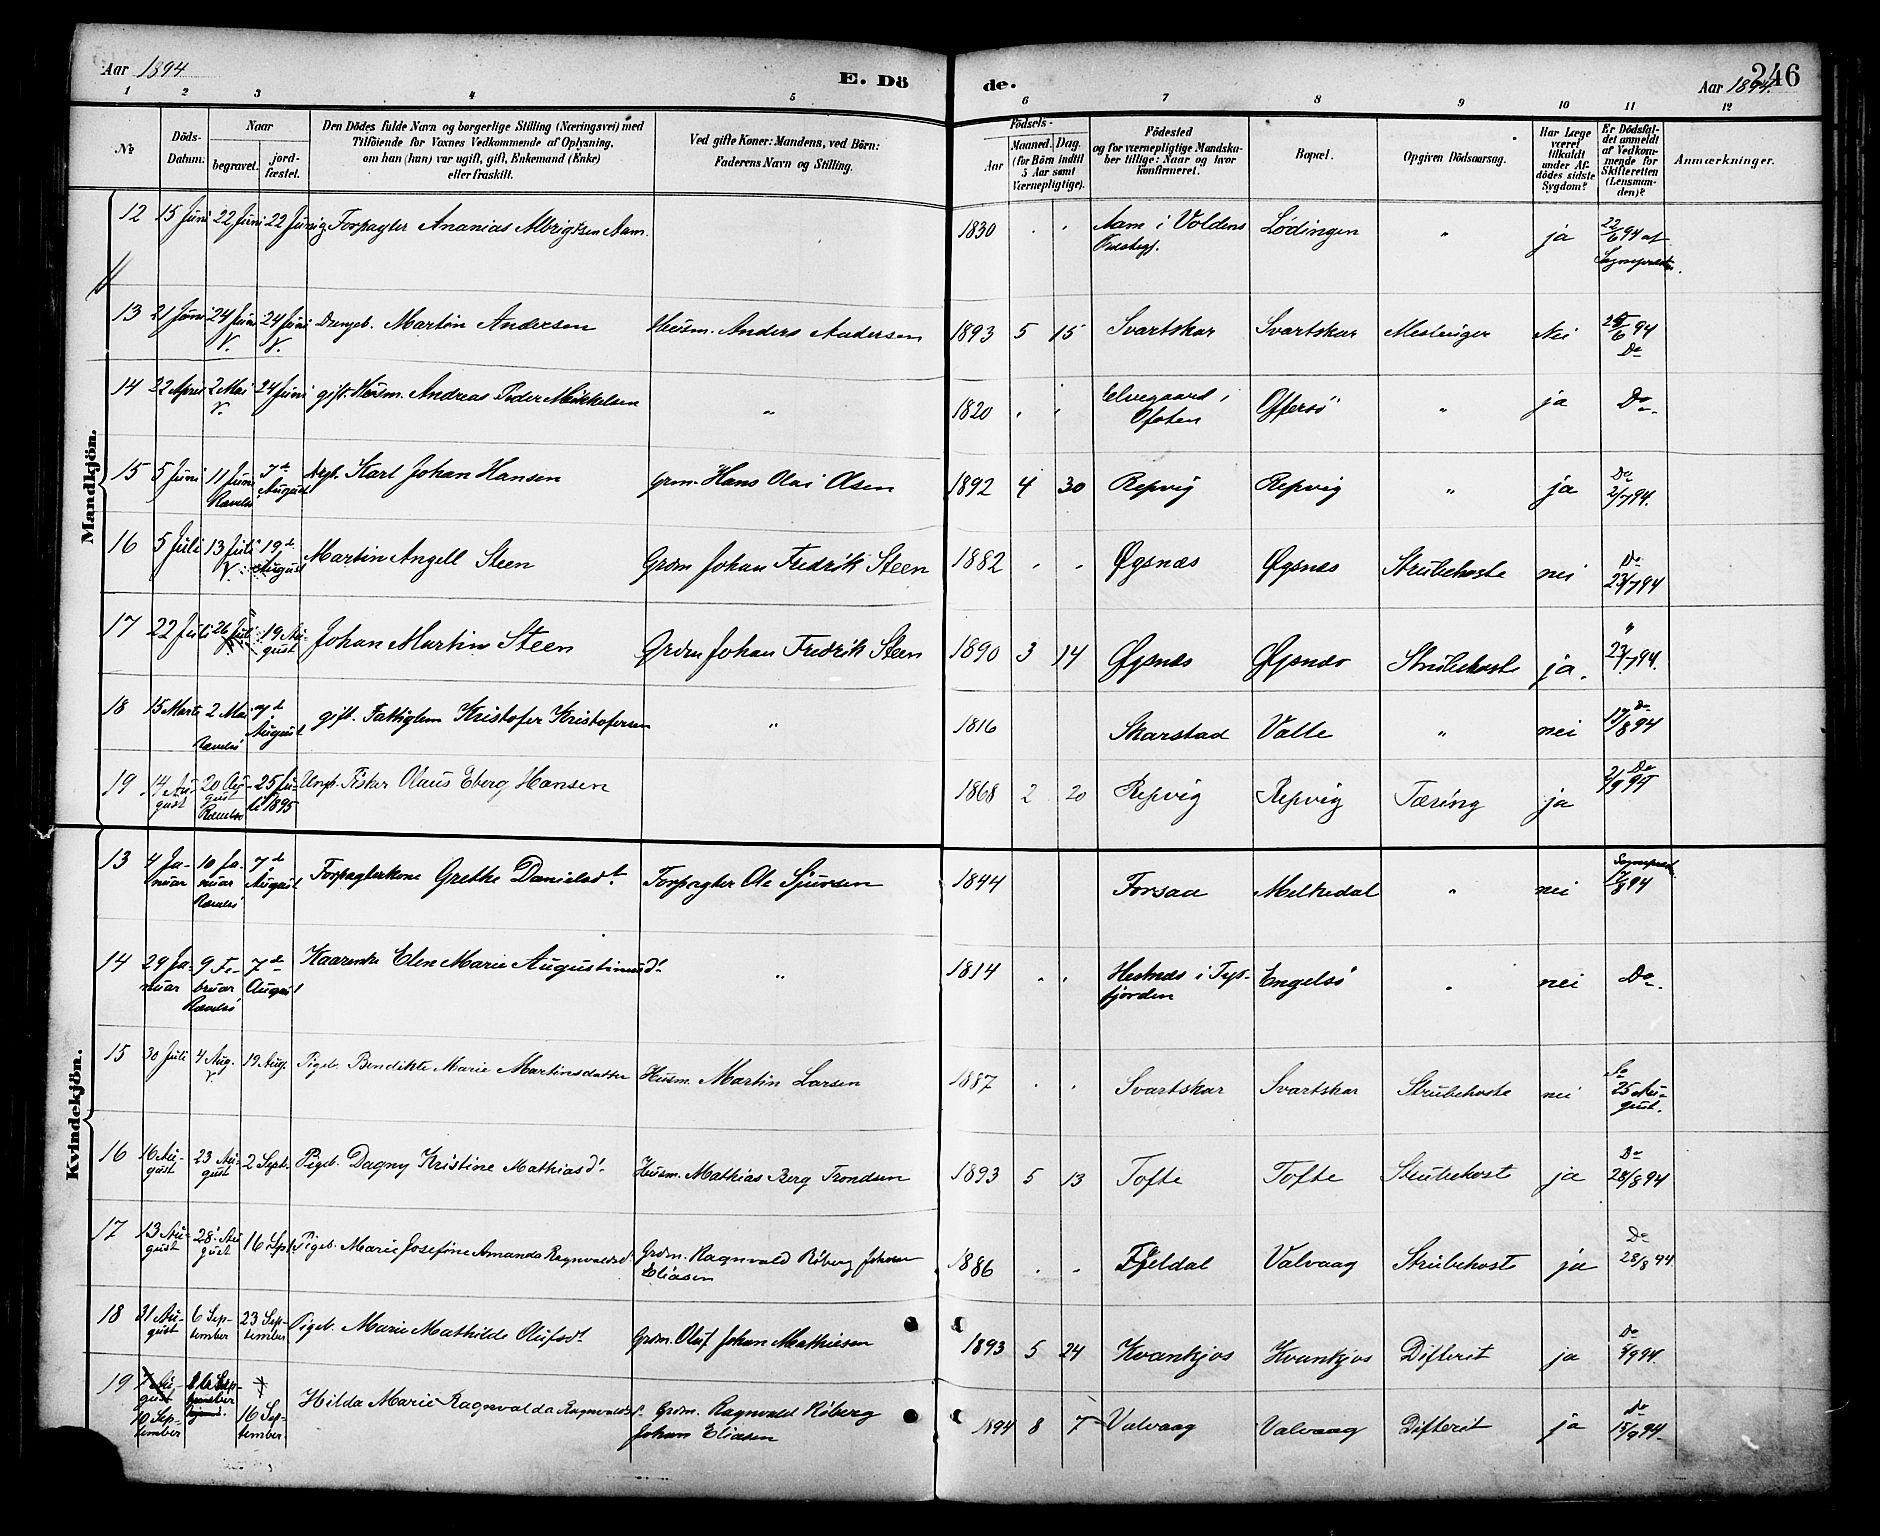 Aar 1894
E. Dö
de.
246
Aar 1894.
1 2 3 4 5 6 7 8 9 10 11 12
No
Döds-Datum.
Naar
begravet.
jord-fæstet.
Den Dödes fulde Navn og borgerlige Stilling (Næringsvei) med
Tilföiende for Voxnes Vedkommende af Oplysning,
om han (hun) var ugift, gift, Enkemand (Enke)
eller fraskilt.
Ved gifte Koner: Mandens, ved Börn:
Faderens Navn og Stilling.
Födsels-
Aar
Maaned. Dag.
(for Börn indtil
5 Aar samt
Værnepligtige).
Födested
og for værnepligtige Mandska-
ber tillige: Naar og hvor
konfirmeret.
Bopæl.
Opgiven Dödsaarsag.
Har Læge
været
tilkaldt
under Af-
dödes sidste
Sygdom?
Er Dödsfal-
det anmeldt
af Vedkom-
mende for
Skifteretten
(Lensman-
den)?
Anmærkninger.
Mandkjön.
12 15 Juni 22 Juni 22 Juni Forpagter Ananias Albrigtsen Aam. 1830 Aam i Voldens Lødingen " ja 22/6 94 af
13 21 Juni 24 Juni V. 24 Juni V. Drengeb. Martin Andersen Husm. Anders Andersen 1893 5 15 Svartskar Svartskar Meslinger Nei 25/6 94 Do
14 22 April 2 Mai V. 24 Juni gift. Husm. Andreas Peder Mikkelsen " 1820 Elvegaard i Ofoten Offersö " ja Do
15 5 Juni 11 Juni Rænelsö 7de August Karl Johan Hansen Grm. Hans Olai Olsen 1892 4 30 Repvig Repvig " ja Do 2/7 94.
16 5 Juli 13 Juli V. 19de August Martin Angell Steen Grdm Johan Fredrik Steen 1882 Øgsnæs Øgsnæs Strubehoste nei Do 23/7 94
17 22 Juli 26 Juli 19 August Johan Martin Steen Grdm Johan Fredrik Steen 1890 3 14 Øgsnæs Øgsnæs Strubehoste ja. " 23/7 94.
18 15 Marts 2 Mai 7de August gift. Fattiglem Kristofer Kristofersen " 1816 Skarstad Valle " nei Do 17/8 94
19 14 August 20 August 25 Juli 1895 Ungk. Fisker Olaus Eberg Hansen 1868 2 20 Repvig Repvig Tæring ja Do 2/9 94
Kvindekjön.
13 4 Januar 10 Januar 7de August Forpagterkone Grethe Danielsdt. Forpagter Ole Sjursen 1844 Forsaa Melkedal " nei 17/8 94
14 29 Januar 9 Februar 7de August Elen Marie Augustinusdt " 1814 Hestnæs i Tysfjorden Engelsö nei Do.
15 30 Juli 4 Aug. V. 19 Aug. Pigeb. Bendikte Marie Martinsdatter Husm. Martin Larsen 1887 Svartskar Svartskar Strubehoste nei Do 25 August.
16 16 August 23 August 2 Sept. Pigeb. Dagny Kristine Mathiasdt. Husm. Mathias Berg Trondsen 1893 5 13 Tofte Tofte Strubehoste ja Do 28/8 94
17 13 August 28 August 16 Sept Pigeb. Marie Josefine Amanda Ragnvaldsd. Grdm. Ragnvald Röberg Johan
Eliasen 1886 Fjeldal Valvaag Strubehoste ja Do 28/8 94
18 31 August 6 September 23 September Pigeb. Marie Mathilde Olufsdt Grdm. Oluf Johan Mathisen 1893 5 24 Kvankjos Kvankjos Difterit ja Do /9 94.
19 10 September 16 September Hilda Marie Ragnvalda Ragnvaldsd. Grdm. Ragnvald Röberg
Johan Eliasen 1894 8 7 Valvaag Valvaag Difterit ja Do 15/9 94.